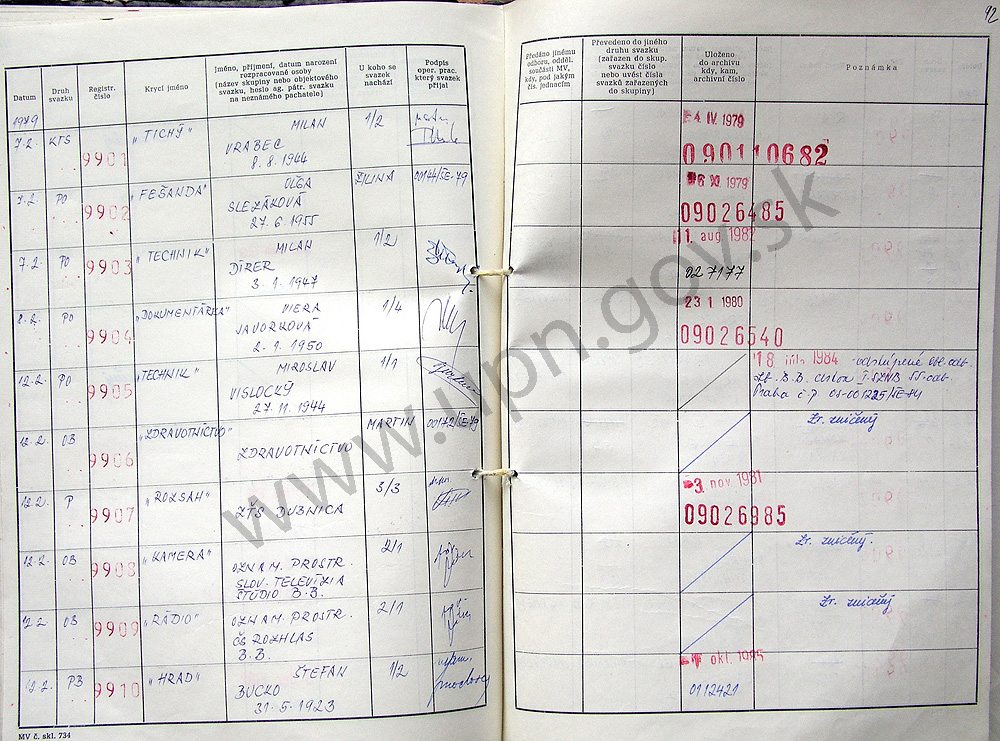 92
Datum
Druh svazku
Registr. číslo
Krycí jméno
Jméno, příjmení, datum narození
rozpracované osoby
(název skupiny nebo objektového
svazku, heslo ag. pátr. svazku
na neznámého pachatele)
U koho se
svazek
nachází
Podpis
oper. prac.
který svazek
přijal
Předáno jinému
odboru, odděl.
součásti MV,
kdy, pod jakým
čís. jednacím
Převedeno do jiného
druhu svazku
(zařazen do skup.
svazku číslo
nebo uvést čísla
svazků zařazených
do skupiny)
Uloženo
do archivu
kdy, kam,
archivní číslo
Poznámka
1979
7.2. KTS 9901 "TICHÝ" MILAN 1/2
VRABEC
8.8.1944
4 IV. 1979
090110682
7.2. PO 9902 "FEŠANDA" OĽGA ŽILINA 00144/ŠE-79
SLEZÁKOVÁ
27.6.1955
6 XI 1979
09026485
7.2. PO 9903 "TECHNIK" MILAN 1/2
DÍRER
3.1.1947
11. aug 1982
027177
8.2. PO 9904 "DOKUMENTÁRKA" VIERA 1/4
JAVORKOVÁ
2.1.1950
23 1 1980
09026540
12.2. PO 9905 "TECHNIK" MIROSLAV 1/1
VISLOCKÝ
27.11.1944
18 júla 1984 - odstúpené
Praha č.p. OS-001225/ŠE-84
12.2. OB 9906 "ZDRAVOTNÍCTVO" MARTIN 00172/ŠE-79
ZDRAVOTNÍCTVO
Zv. zničený
12.2. P 9907 "ROZSAH" 3/3
ZŤS DUBNICA
3. nov. 1981
09026985
12.2. OB 9908 "KAMERA" 2/1
OZNAM. PROSTR.
SLOV. TELEVÍZIA
ŠTÚDIO B.B.
Zv. zničený.
12.2 OB 9909 "RÁDIO" 2/1
OZNAM. PROSTR.
ČS ROZHLAS
B.B.
Zv. zničený
12.2. PB 9910 "HRAD" ŠTEFAN 1/2
BUCKO
31.5.1923
okt. 1985
0112421
MV č. skl. 734
www.upn.gov.sk